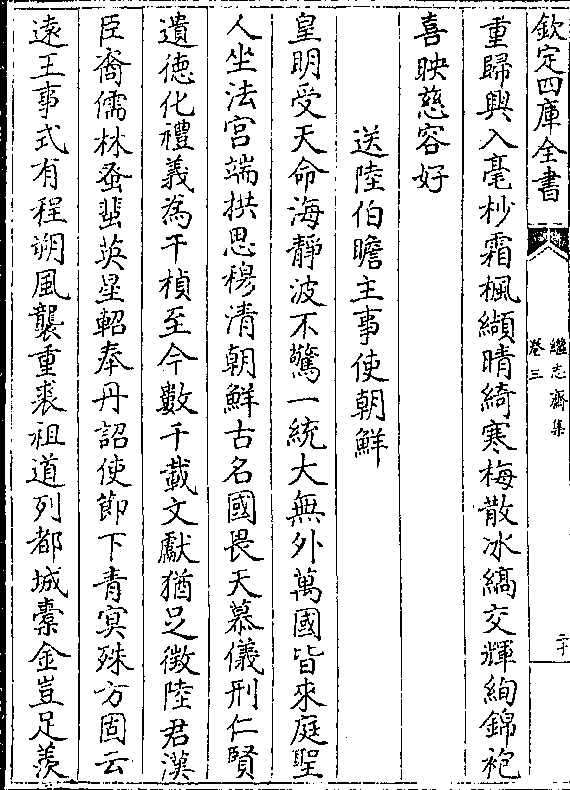 欽定四庫全書
繼志齋集
卷三
二十
重歸興入毫杪霜楓纈晴綺寒梅散冰縞交輝絢錦袍
喜映慈容好
送陸伯瞻主事使朝鮮
皇明受天命海靜波不驚一統大無外萬國皆來庭聖
人坐法宫端拱思穆清朝鮮古名國畏天慕儀刑仁賢
遺徳化禮義為干楨至今數千載文獻猶足徵陸君漢
臣裔儒林蚤蜚英星軺奉丹詔使節下青冥殊方固云
逺王事式有程朔風襲重裘祖道列都城槖金豈足羨